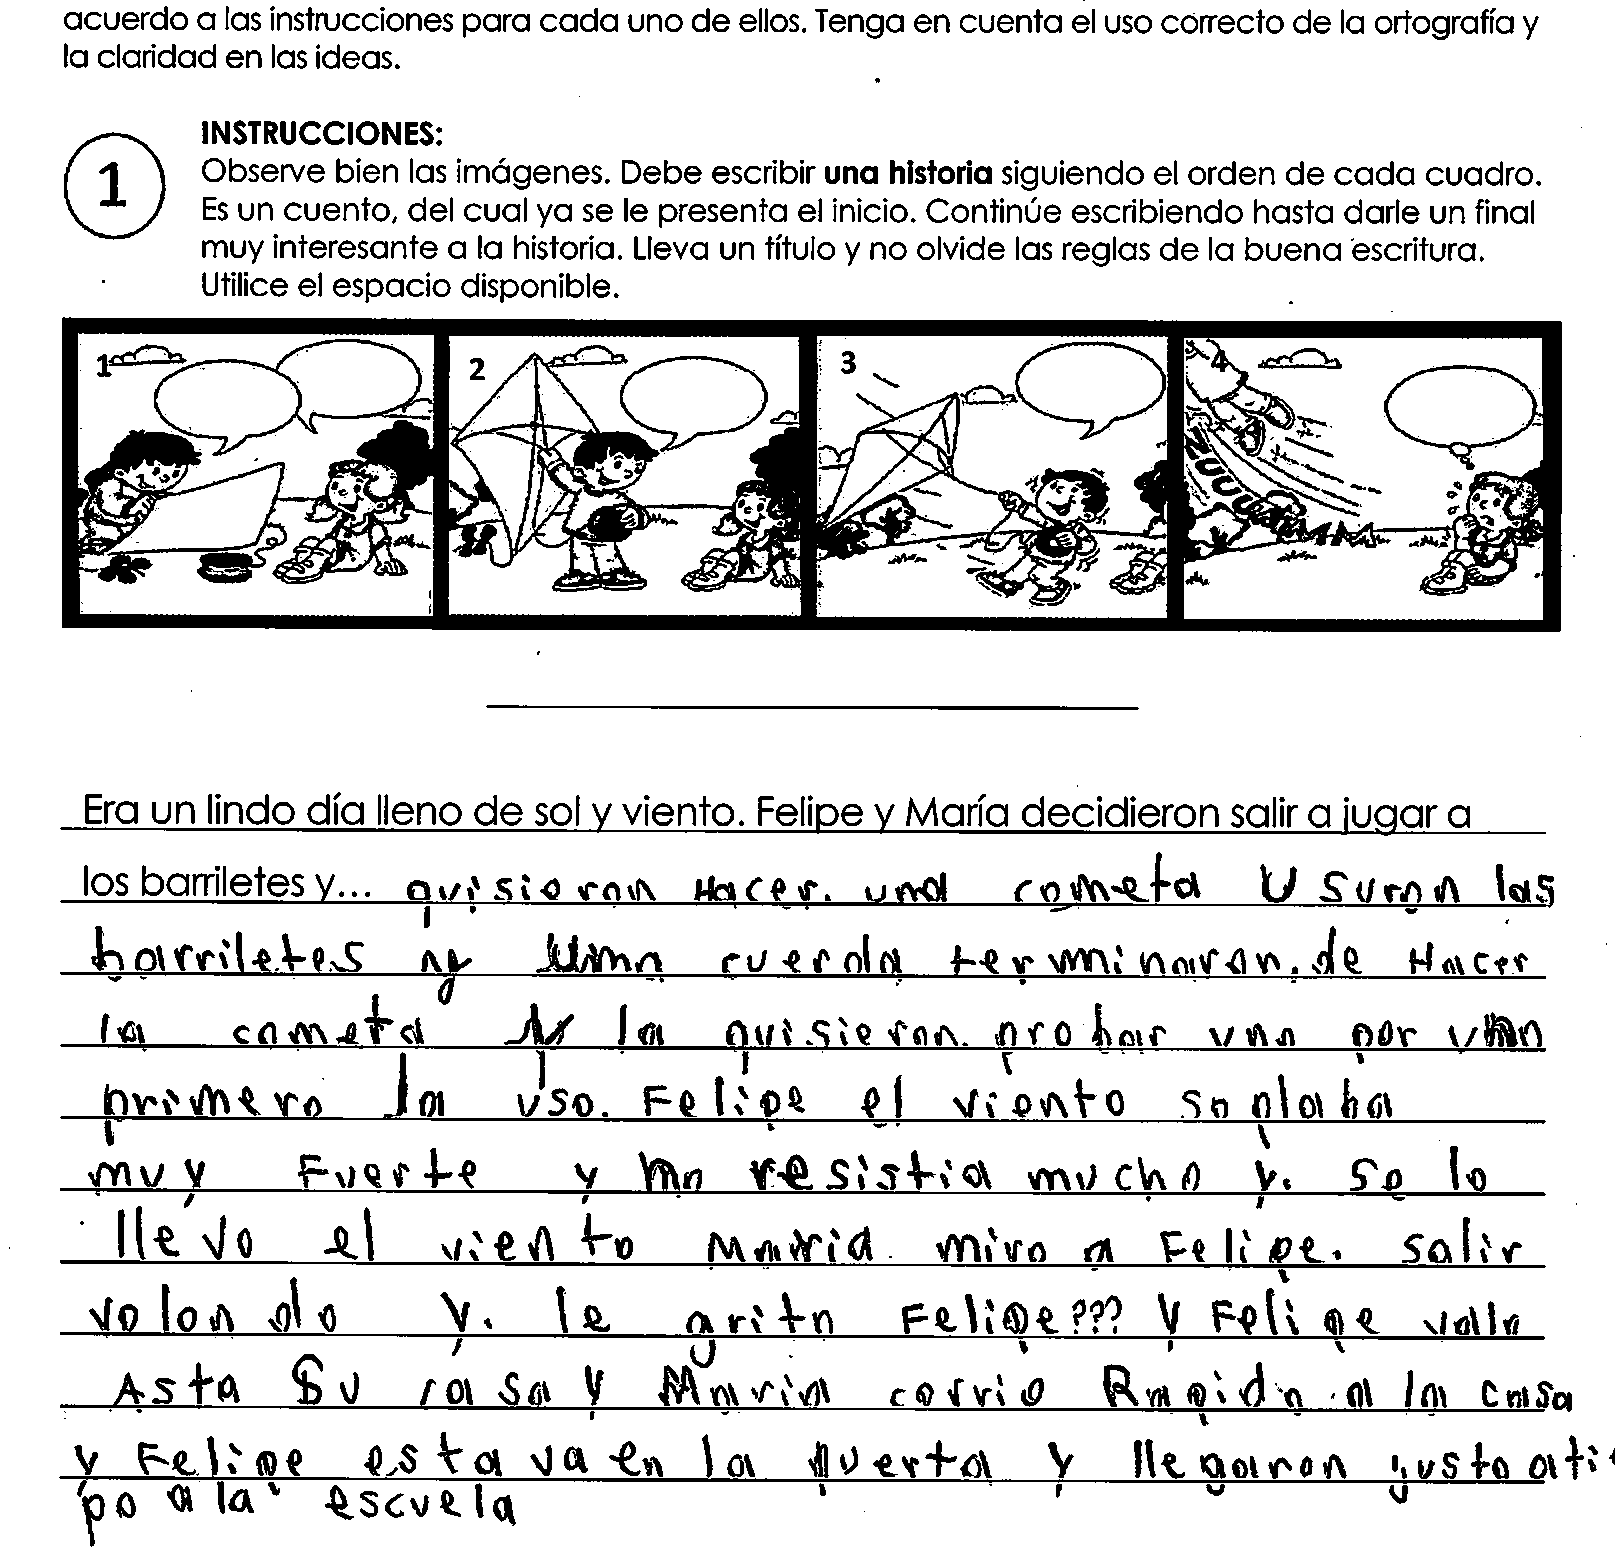 acuerdo a las instrucciones para cada uno de ellos. Tenga en cuenta el uso correcto de la ortografía y
la claridad en las ideas.
1
INSTRUCCIONES:
Observe bien las imágenes. Debe escribir una historia siguiendo el orden de cada cuadro.
Es un cuento, del cual ya se le presenta el inicio. Continúe escribiendo hasta darle un final
muy interesante a la historia. Lleva un título y no olvide las reglas de la buena escritura.
Utilice el espacio disponible.
1 2 3 4
Era un lindo día lleno de sol y viento. Felipe y María decidieron salir a jugar a
los barriletes y... quisieron Hacer. una cometa Usuron las
barriletes y una cuerda terminaron. de Hacer
la cometa y la quisieron. probar uno por uno
primero la uso. Felipe el viento soplaba
muy Fuerte y no resistia mucho y. se lo
llevo el viento Maria. miro a Felipe. salir
volondo y. le grito Felipe??? y Felipe vollo
Asta Su casa y Maria corrio Rapido a la casa
y Felipe estava en la puerta y llegaron justo a ti
po a la escuela